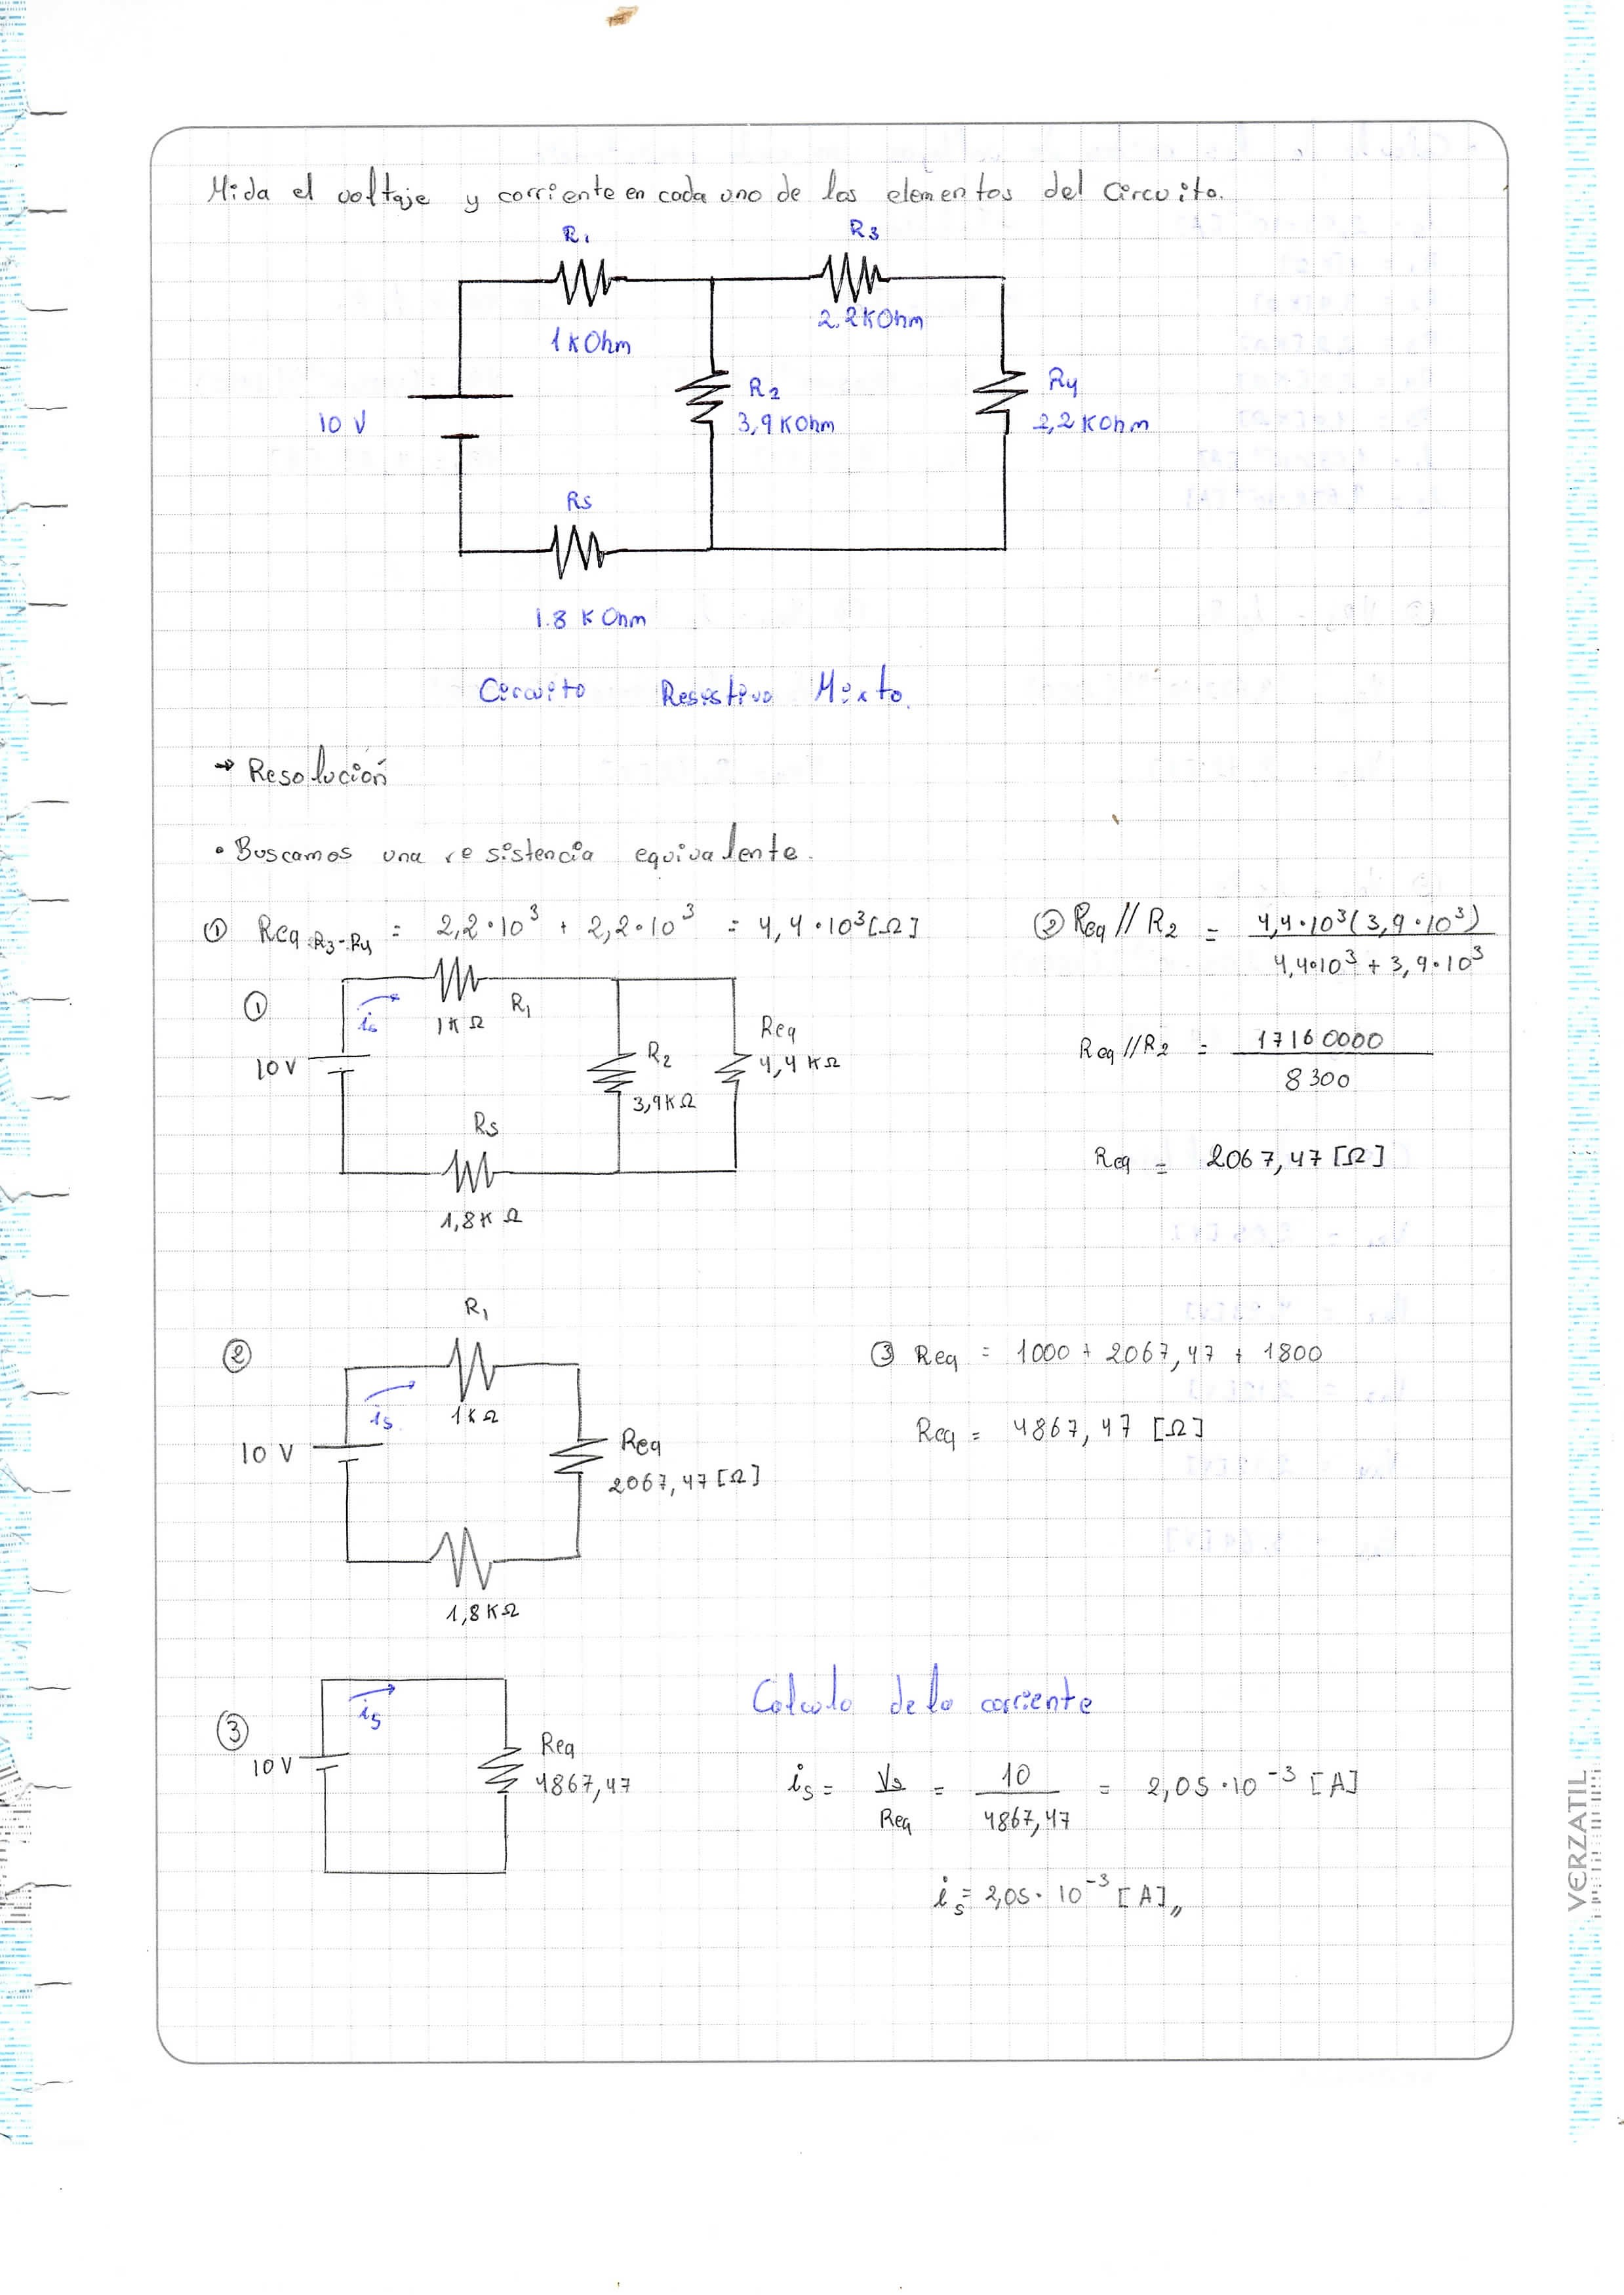 Mida el voltaje y corriente en cada uno de los elementos del circuito.
R1
R3
1 kOhm
2.2 kOhm
R2
3,9 kOhm
R4
2,2 kOhm
10 V
R5
1.8 kOhm
Circuito Resistivo Mixto.
→ Resolución
• Buscamos una resistencia equivalente.
① Req R3-R4 = 2,2·10³ + 2,2·10³ = 4,4·10³[Ω]
② Req // R2 = 4,4·10³(3,9·10³)
4,4·10³ + 3,9·10³
①
is
1KΩ
R1
10V
R2
3,9KΩ
Req
4,4KΩ
R5
1,8KΩ
Req//R2 = 17160000
8300
Req = 2067,47[Ω]
②
R1
is
1KΩ
10 V
Req
2067,47[Ω]
1,8KΩ
③ Req = 1000 + 2067,47 + 1800
Req = 4867,47 [Ω]
③
is
10V
Req
4867,47
Calculo de la corriente
is = Vs = 10 = 2,05·10⁻³ [A]
Req 4867,47
is = 2,05·10⁻³ [A]
VERZATIL